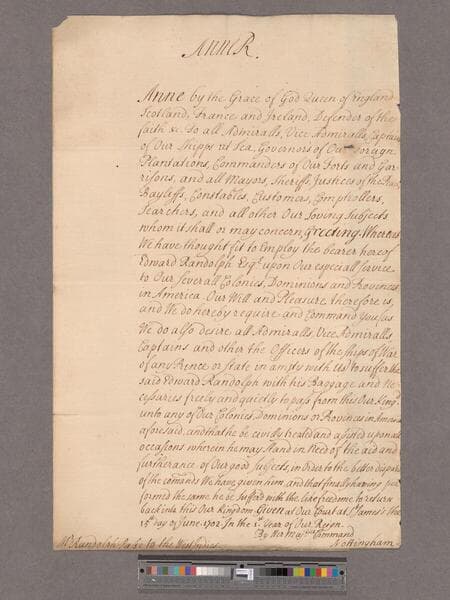 Anne R.
Anne by the Grace of God Queen of England
Scotland, France and Ireland, Defender of the
faith &c. To all Admiralls, Vice Admiralls, Captains
of Our Shipps at Sea, Governors of Our Foreign
Plantations, Commanders of Our Forts and Gar-
risons, and all Mayors, Sheriffs, Justices of the Peace
Bayliffs, Constables, Customers, Comptrollers,
Searchers, and all other Our Loving Subjects
whom it shall or may concern, Greeting. Whereas
We have thought fit to Employ the bearer hereof
Edward Randolph Esqr. upon Our especiall service
to Our severall Colonies, Dominions and Provinces
in America. Our Will and Pleasure therefore is,
and We do hereby require and Command you, as
We do also desire all Admiralls, Vice Admiralls
Captains and other the Officers of the ships of War
of any Prince or state in amity with Us to suffer the
said Edward Randolph with his Baggage and Ne-
cessaries freely and quietly to pass from this Our Kingdo
unto any of Our Colonies, Dominions or Provinces in America
aforesaid, and that he be civilly treated and assisted upon all
occasions wherein he may stand in Need of the aid and
furtherance of Our good subjects, in order to the better dispatch
of the comands We have given him, and that finally having per-
formed the same he be suffer'd with the like freedome to return
back into this Our Kingdom. Given at Our Court at St. James's the
15th day of June. 1702. In the 1st. Year of Our Reign.
By Her Majties Command
Nottingham
Mr. Randolph to the West Indies